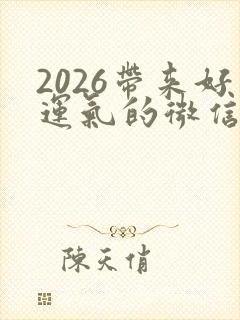 2026帶来好
運氣的微信
陳天俏